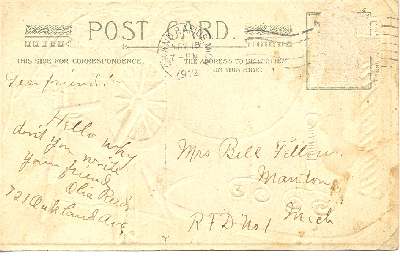 POST CARD.
THIS SIDE FOR CORRESPONDENCE.
THE ADDRESS TO BE WRITTEN
ON THIS SIDE.
Dear friend:
Hello why
don't you write
your friend
Reed
721 Oakland Ave
Mrs Bell
R F D No 1
Mich